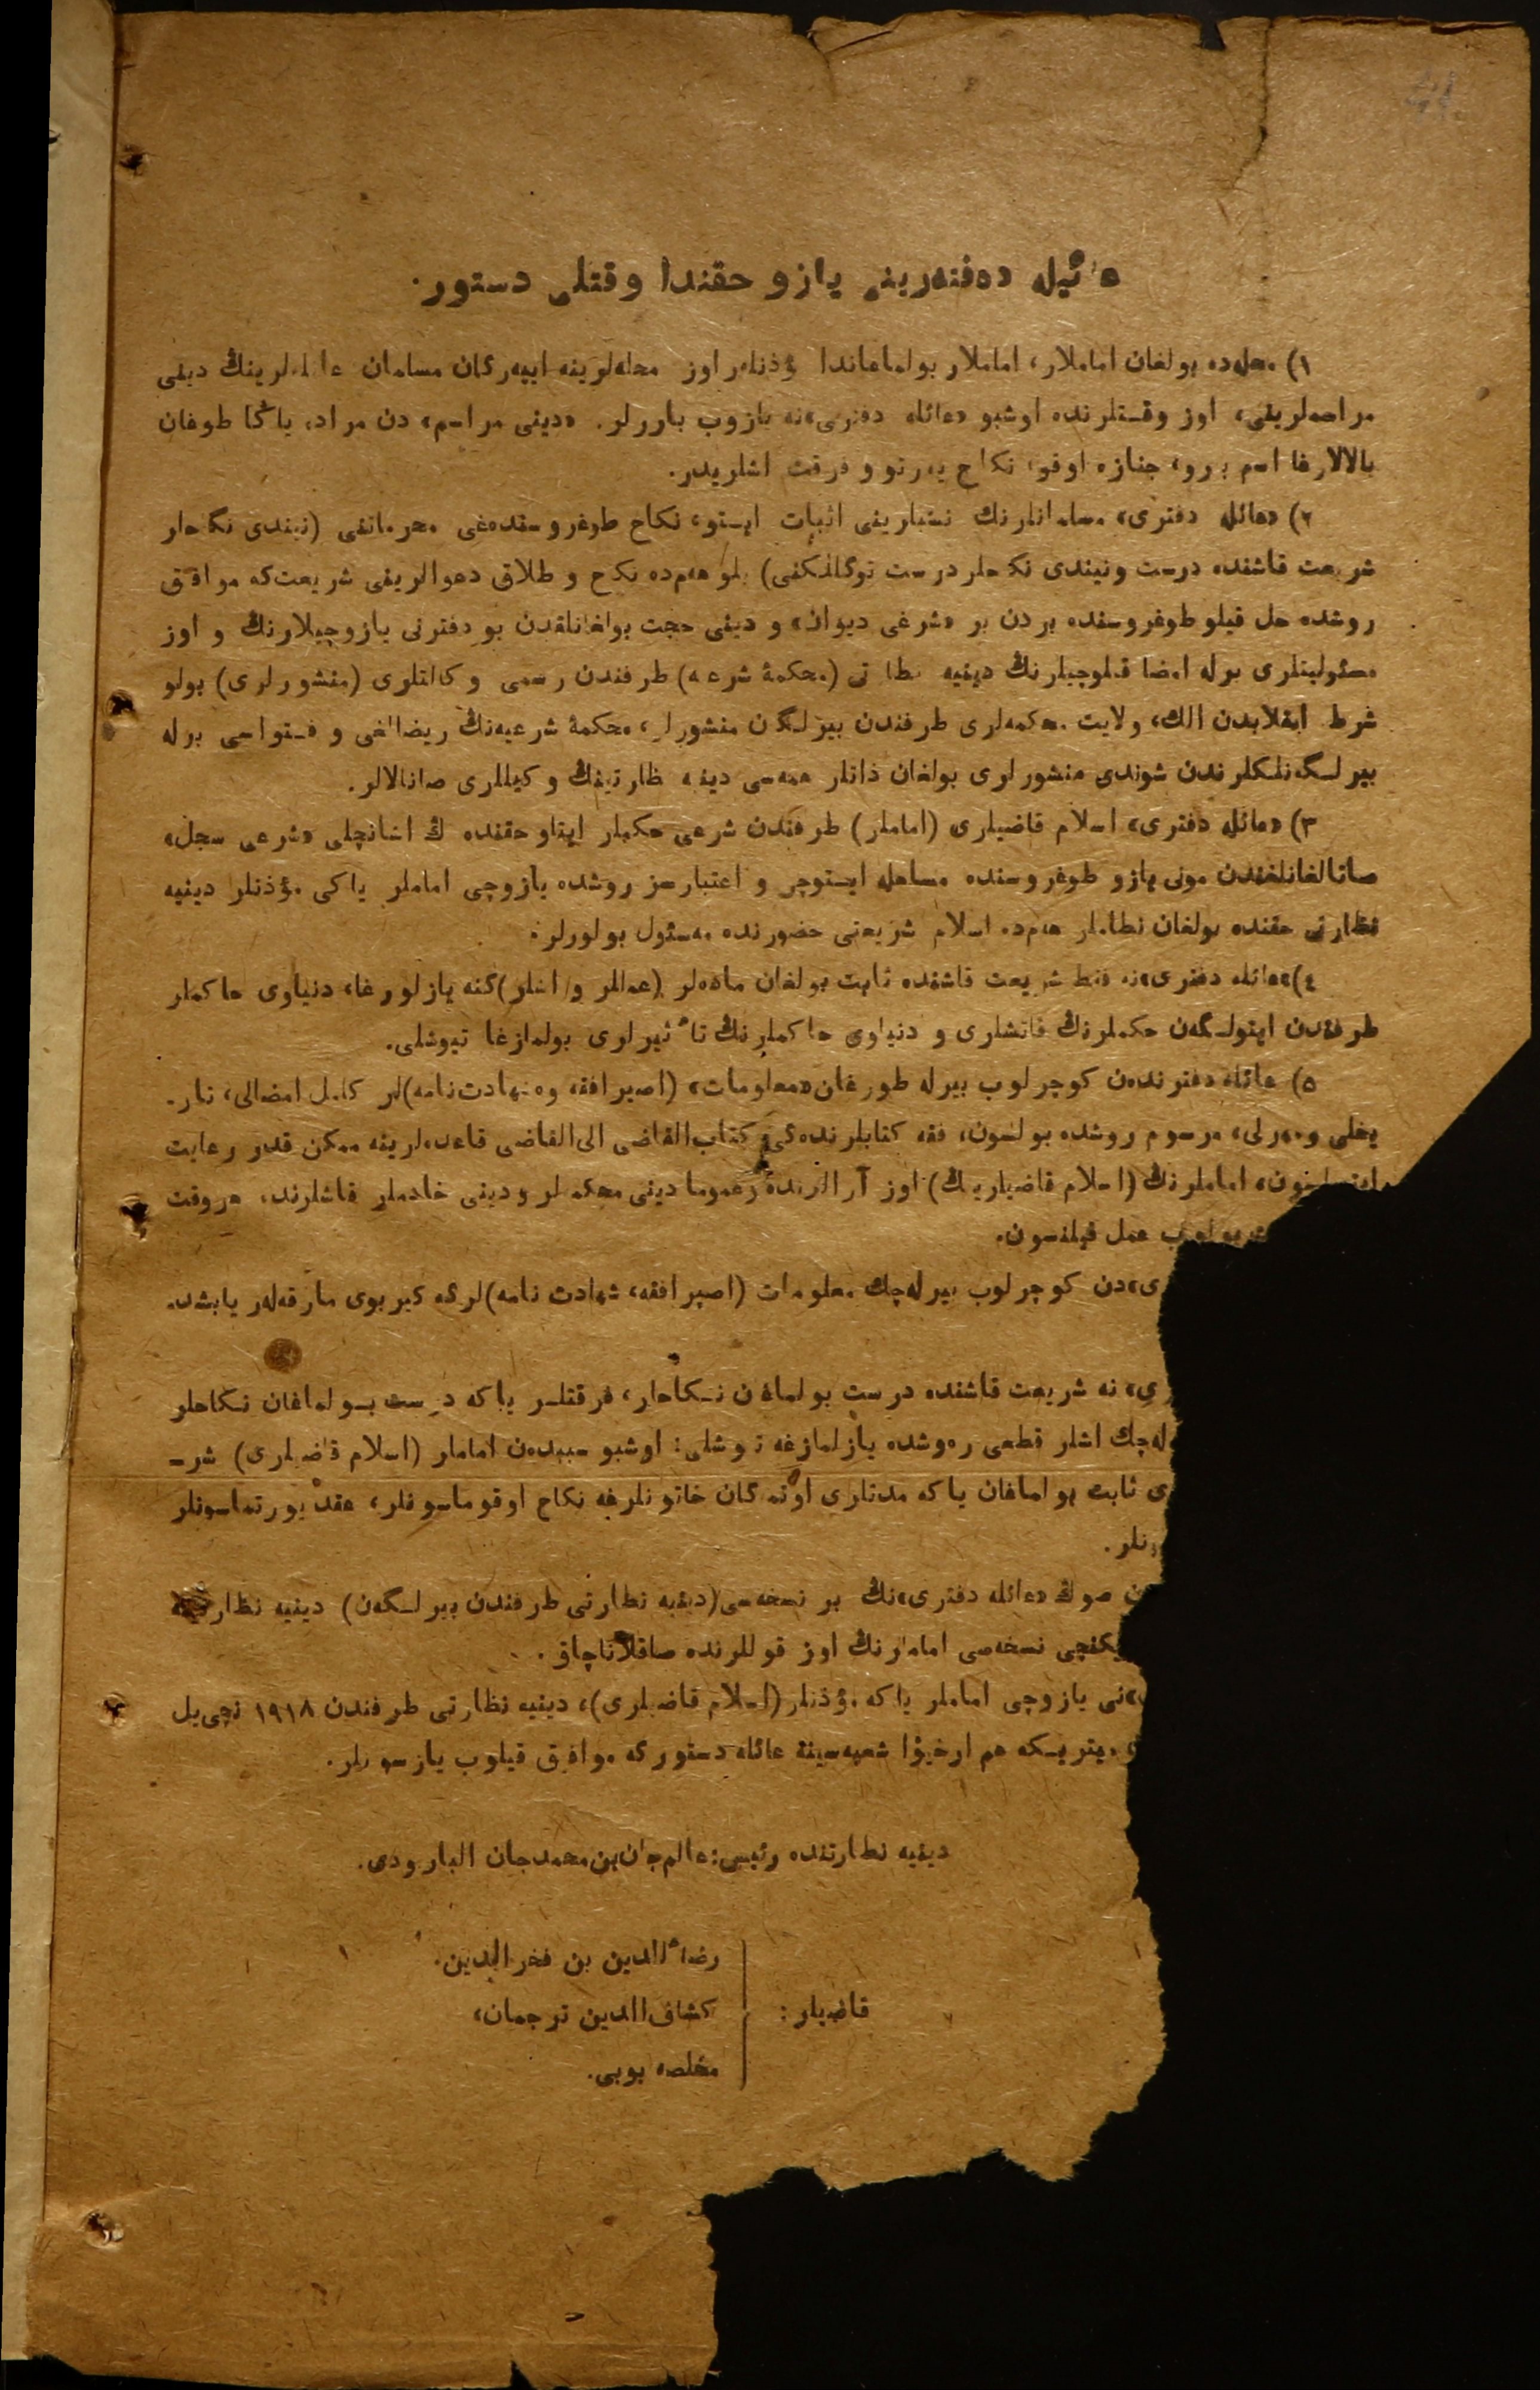 عائيله دەفتەرينى يازو حقندا وقتلى دستور.
١) محله‌ده بولغان اماملار، اماملار بولماغاندا مؤذنلر اوز محله‌لرينه اييه‌رگان مسلمان عائله‌لرينڭ دينى
مراسملرينى، اوز وقتلرنده اوشبو «عائله دفترى»نه يازوب باررلر. «دينى مراسم» دن مراد، ياڭا طوغان
بالالارغا اسم بيرو، جنازه اوقو، نكاح يورتو و فرقت اشلريدر.
٢) «عائله دفترى» مسلمانلرنڭ نسبلرينى اثبات ايتو، نكاح طوغروسنده‌غى محرماتنى (نيندى نكاحلر
شريعت قاشنده درست و نيندى نكاحلر درست توگلكنى) بلو هم‌ده نكاح و طلاق دعوالرينى شريعت‌كه موافق
روشده حل قيلو طوغروسنده بردن بر «شرعى ديوان» و دينى حجت بولغانلقدن بو دفترنى يازوچيلارنڭ و اوز
مسئوليتلرى برله امضا قيلوچيلرنڭ دينيه نظارتى (محكمۀ شرعيه) طرفندن رسمى وكالتلرى (منشورلرى) بولو
شرط. انقلابدن الك، ولايت محكمه‌لرى طرفندن بيرلگن منشورلر، محكمۀ شرعيه‌نڭ ريضالغى و فتواسى برله
بيرلگه‌نلكلرندن شوندى منشورلرى بولغان ذاتلر همه‌سى دينيه نظارتينڭ وكيللرى صانالالر.
٣) «عائله دفترى» اسلام قاضيلرى (اماملر) طرفندن شرعى حكملر ايتلو حقنده ڭ اشانچلى «شرعى سجل»
صانالغانلغندن مونى يازو طوغروسنده مساهله ايتوچى و اعتبارسز روشده يازوچى اماملر ياكى مؤذنلر دينيه
نظارتى حقنده بولغان نظاملر هم‌ده اسلام شريعتى حضورنده مسئول بولورلر.
٤) «عائله دفترى»نه فقط شريعت قاشنده ثابت بولغان ماده‌لر (عمللر و اشلر) گنه يازلورغا، دنياوى حاكملر
طرفندن ايتولگەن حكملرنڭ قاتشلرى و دنياوى حاكملرنڭ تأثيرلرى بولمازغا تيوشلى.
٥) عائله دفترندەن كوچرلوب بيرله طورغان «معلومات» (اصپرافقه و شهادت‌نامه)لر كامل امضالى، تار-
يخلى و مهرلى، مرسوم روشده بولسون، فقه كتابلرنده‌گى كتاب القاضى الى القاضى قاعده‌لرينه ممكن قدر رعايت
ايتولسون، اماملرنڭ (اسلام قاضيلرينڭ) اوز آرالرنده و عموما دينى محكمه‌لر و دينى خادملر قاشلرنده، هر وقت
بولوب عمل قيلنسون.
ى»دن كوچرلوب بيرله‌چك معلومات (اصپرافقه، شهادت نامه)لرگه گيربوى مارقه‌لەر يابشد.
رى» نه شريعت قاشنده درست بولماغان نكاحلر، فرقتلر ياكه درست بولماغان نكاحلر
له‌چك اشلر قطعى ره‌وشده يازلمازغه تيوشلى: اوشبو سببدەن اماملر (اسلام قاضيلرى) شر-
ى ثابت بولماغان ياكه مدتلرى اوتمەگان خاتونلرغه نكاح اوقوماسونلر، عقد يورتماسونلر
نلر.
ن صوڭ «عائله دفترى»نڭ بر نسخه‌سى (دينيه نظارتى طرفندن بيرلگەن) دينيه نظارتينه
يكنچى نسخه‌سى اماملرنڭ اوز قوللرنده صاقلاناچاق.
»نى يازوچى اماملر ياكه مؤذنلر (اسلام قاضيلرى)، دينيه نظارتى طرفندن ١٩١٨ نچى يل
ميتريكه هم ارخيۋا شعبه‌سينه عائله دستورگه موافق قيلوب يازسونلر.
دينيه نظارتنده رئيس: عالم‌جان بن محمدجان البارودى.
رضاءالدين بن فخرالدين.
قاضيلر: كشاف‌الدين ترجمان،
مخلصه بوبى.